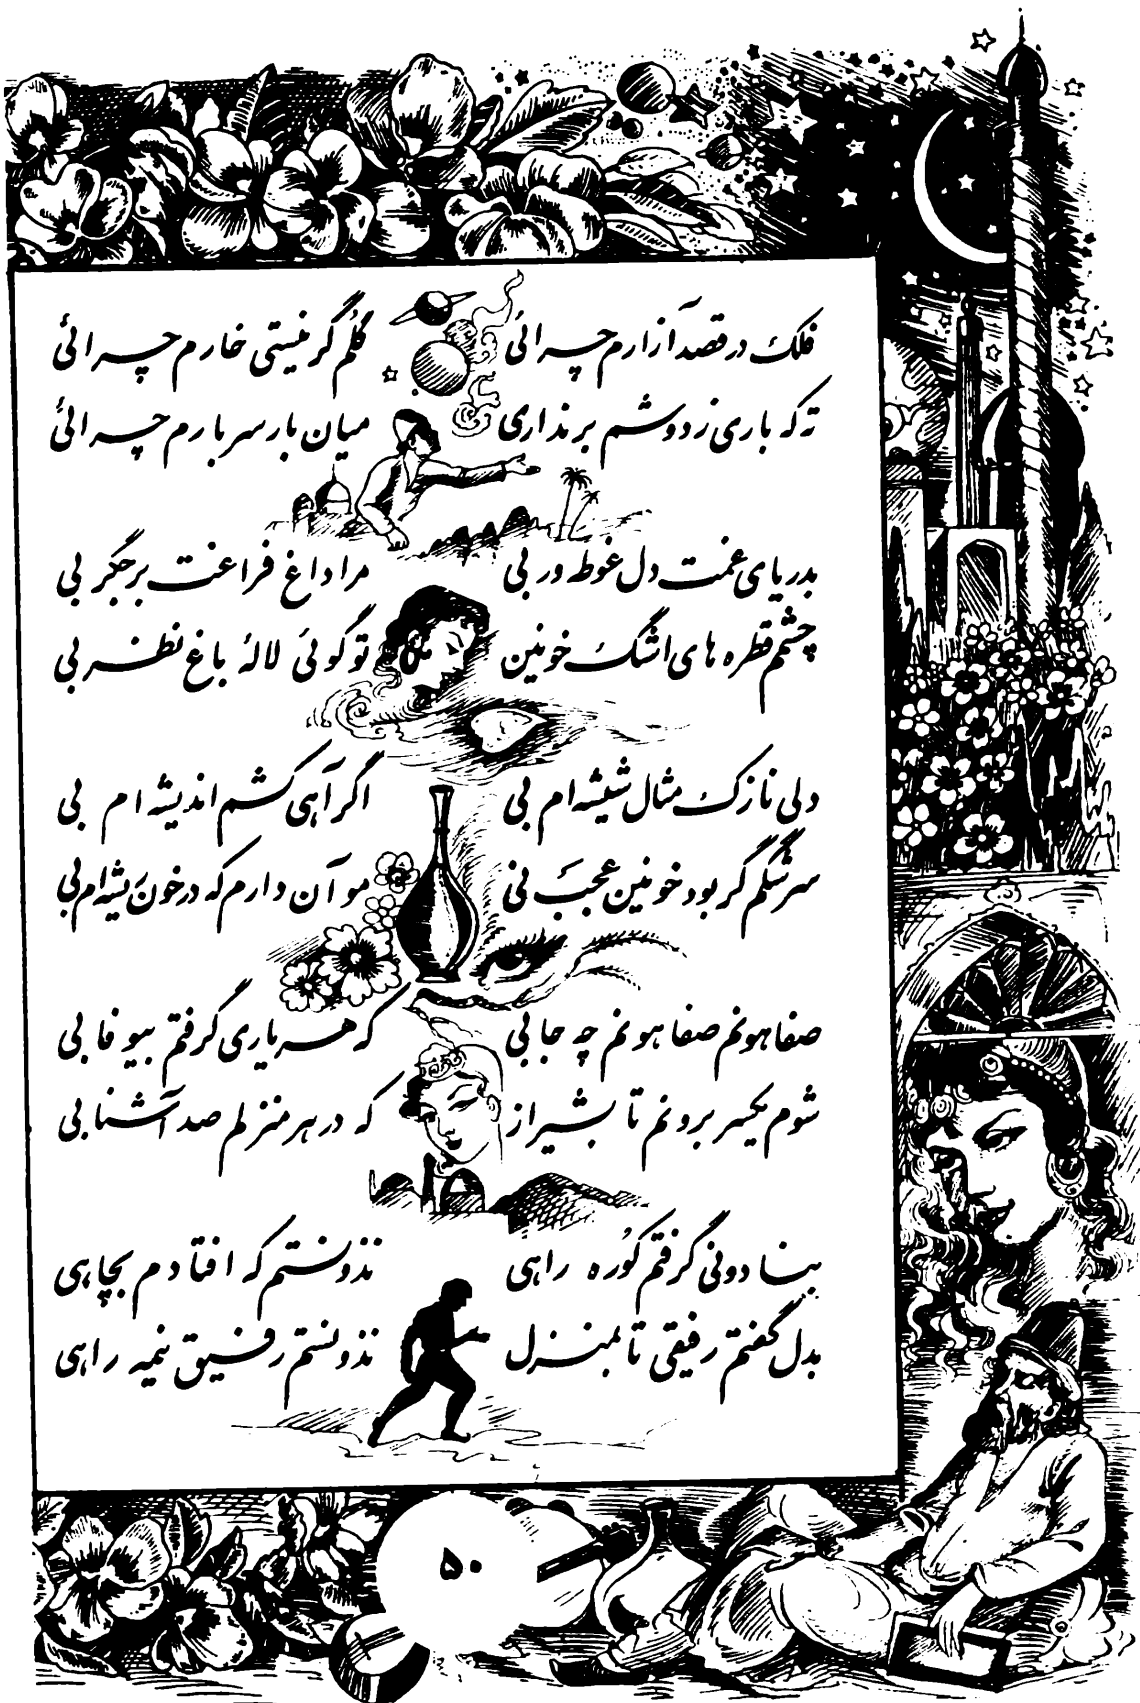 فلک در قصد آزارم چرائی گلم گر نیستی خارم چرائی
ته که باری ز دوشم بر نداری میان بار سربارم چرائی
بدریای غمت دل غوطه ور بی مرا داغ فراغت بر جگر بی
ز چشمم قطره های اشگ خونین تو گوئی لالهٔ باغ نظر بی
دلی نازک مثال شیشه ام بی اگر آهی کشم اندیشه ام بی
سرشگم گر بود خونین عجب نی مو آن دارم که در خون ریشه ام بی
صفاهونم صفاهونم چه جابی که هر یاری گرفتم بیوفا بی
شوم یکسر برونم تا بشیراز که در هر منزلم صد آشنا بی
بنادونی گرفتم کوره راهی نذونستم که افتادم بچاهی
بدل گفتم رفیقی تا بمنزل نذونستم رفیق نیمه راهی
۵۰